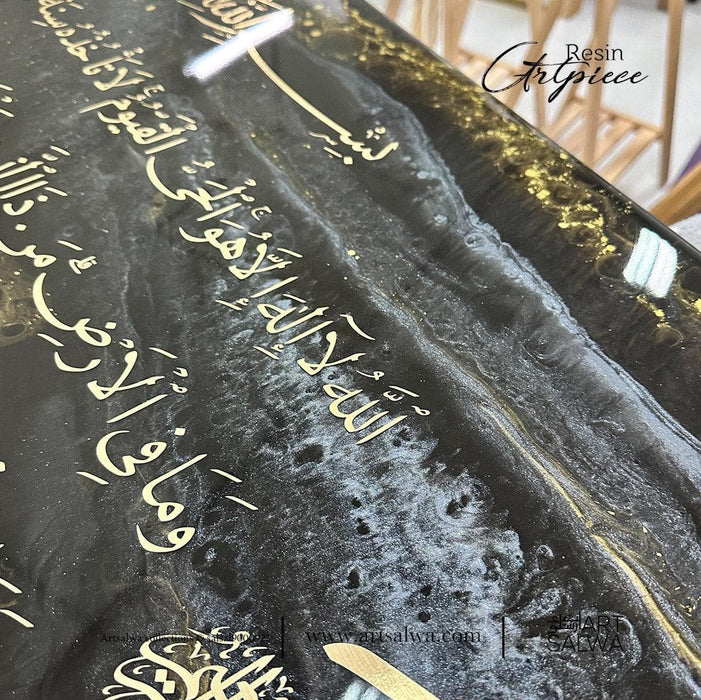 Resin
Artpiece
بِسْمِ اللّٰهِ
اَللّٰهُ لَآ اِلٰهَ اِلَّا هُوَ الْحَيُّ الْقَيُّوْمُ لَا تَاْخُذُهٗ سِنَةٌ
وَمَا فِى الْاَرْضِ مَنْ ذَا الَّذِى
www.artsalwa.com
ART
SALWA